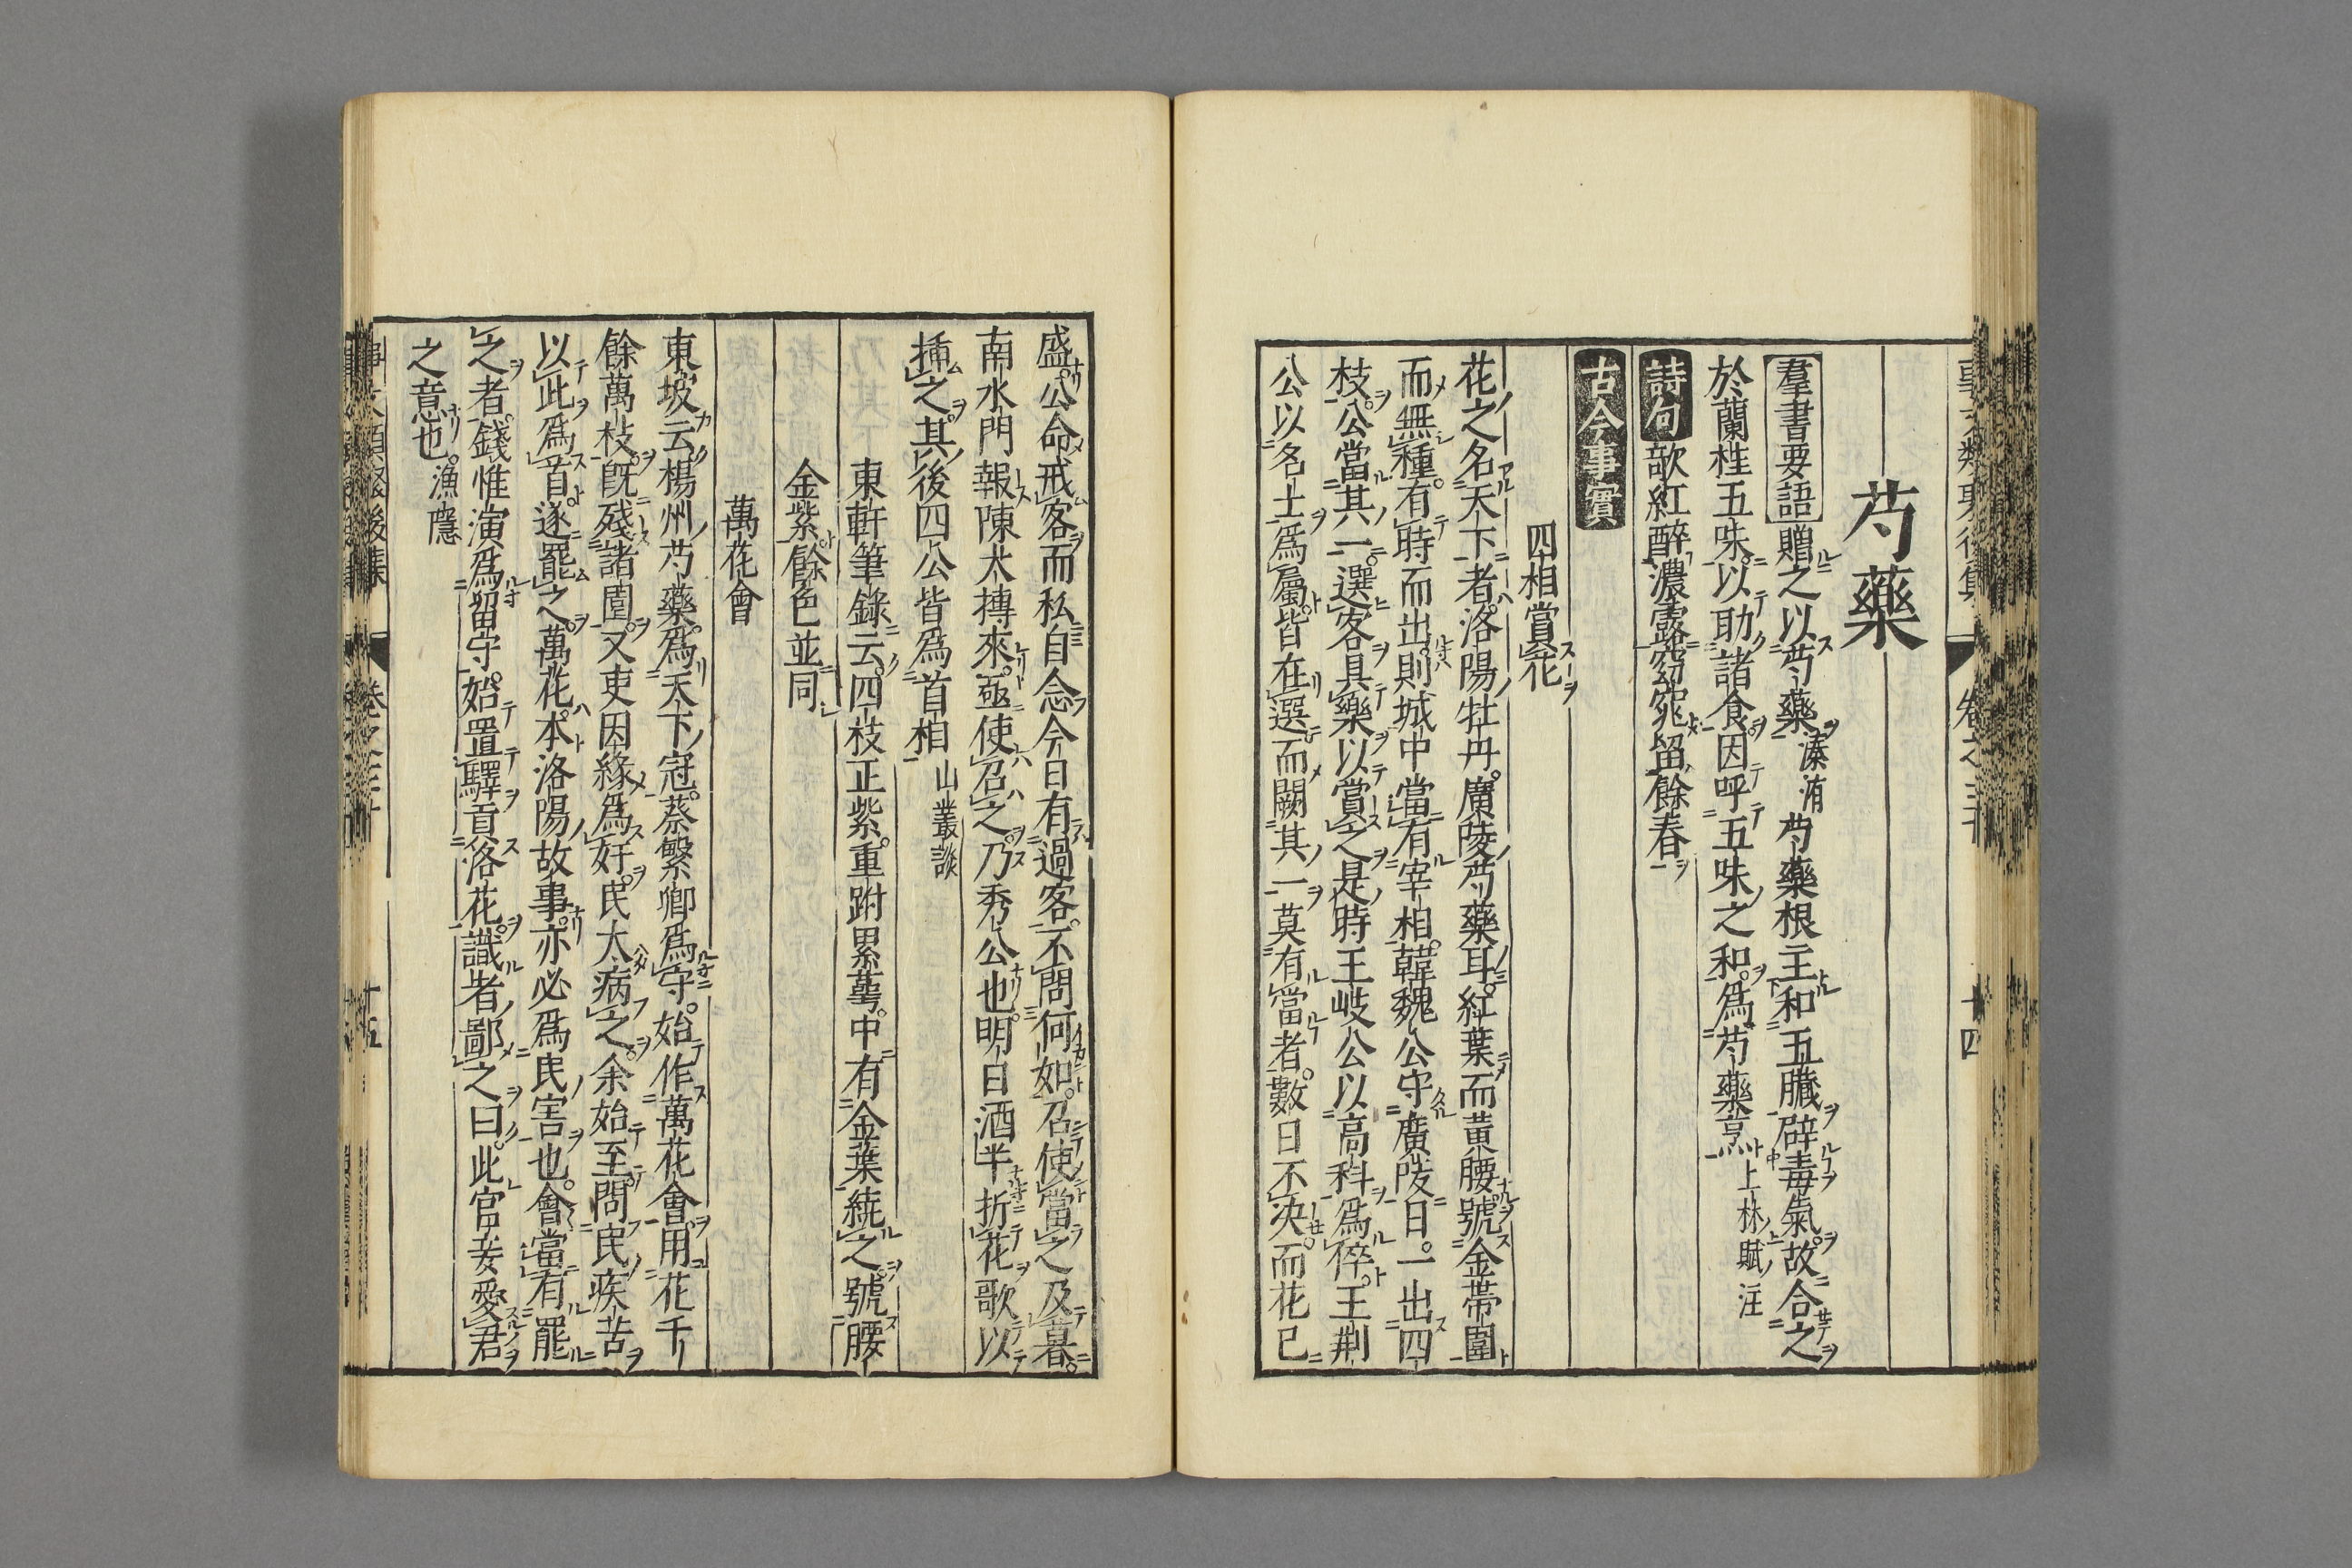 事文類聚後集 卷之三十 十四
芍藥
羣書要語 贈之以芍藥 溱洧 芍藥根主和五臟辟毒氣故合之
於蘭桂五味以助諸食因呼五味之和爲芍藥烹 上林賦注
詩句 欹紅醉濃露窈窕留餘春
古今事實
四相賞花
花之名天下者洛陽牡丹廣陵芍藥耳紅葉而黃腰號金帶圍
而無種有時而出則城中當有宰相韓魏公守廣陵日一出四
枝公當其一選客具樂以賞之是時王岐公以高科爲倅王荆
公以名士爲屬皆在選而闕其一莫有當者數日不決而花已
盛公命戒客而私自念今日有過客不問何如召使當之及暮
南水門報陳太摶來亟使召之乃秀公也明日酒半折花歌以
揷之其後四公皆爲首相 山叢談
東軒筆錄云四枝正紫重跗累萼中有金葉繞之號腰
金紫餘色並同
萬花會
東坡云楊州芍藥爲天下冠蔡繁卿爲守始作萬花會用花千
餘萬枝旣殘諸園又吏因緣爲奸民大病之余始至問民疾苦
以此爲首遂罷之萬花本洛陽故事亦必爲民害也會當有罷
之者錢惟演爲留守始置驛貢洛花識者鄙之曰此官妾愛君
之意也 漁隱
事文類聚後集 卷之三十 十五